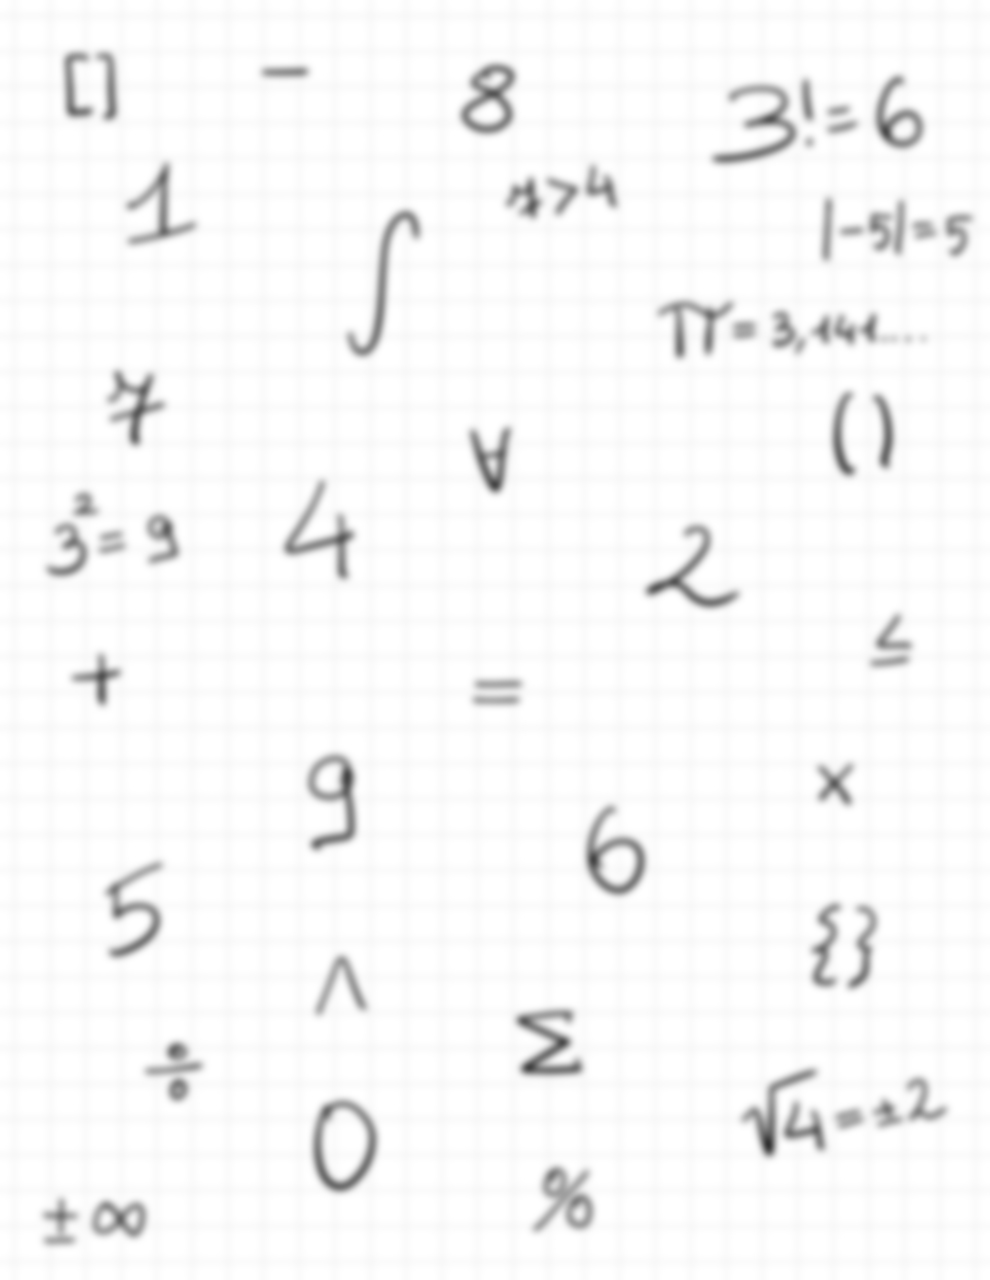 [] - 8 3! = 6
1 ∫ 7 > 4
|-5| = 5
π = 3,141....
7 ∀ ( )
3² = 9 4 2
+ = ≤
9 ×
6
5 { }
^ Σ
÷ √4 = ±2
0 %
± ∞